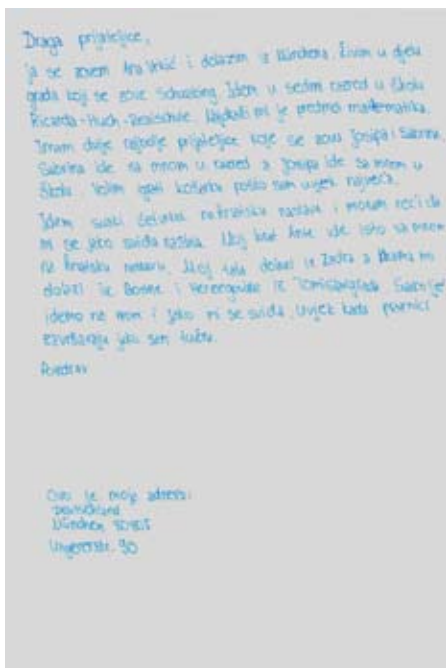 Draga prijateljice,
ja se zovem Ana Vrkić i dolazim iz Münchena. Živim u djelu
grada koji se zove Schwabing. Idem u sedmi razred u školu
Ricarda-Huch-Realschule. Najdraži mi je predmet matematika.
Imam dvije najbolje prijateljice koje se zovu Josipa i Sabrina.
Sabrina ide sa mnom u razred a Josipa ide sa mnom u
školu. Volim igrati košarku pošto sam uvijek najveća.
Idem svaki četvrtak na hrvatsku nastavu i moram reći da
mi se jako sviđa nastava. Moj brat Ante ide isto sa mnom
na hrvatsku nastavu. Moj tata dolazi iz Zadra a Mama mi
dolazi iz Bosne i Hercegovine iz Tomislavgrada.
idemo na more i jako mi se sviđa. Uvijek kada praznici
završavaju jako sam tužna.
Pozdrav
Ovo je moja adresa:
Deutschland
München 80805
Ungererstr. 90